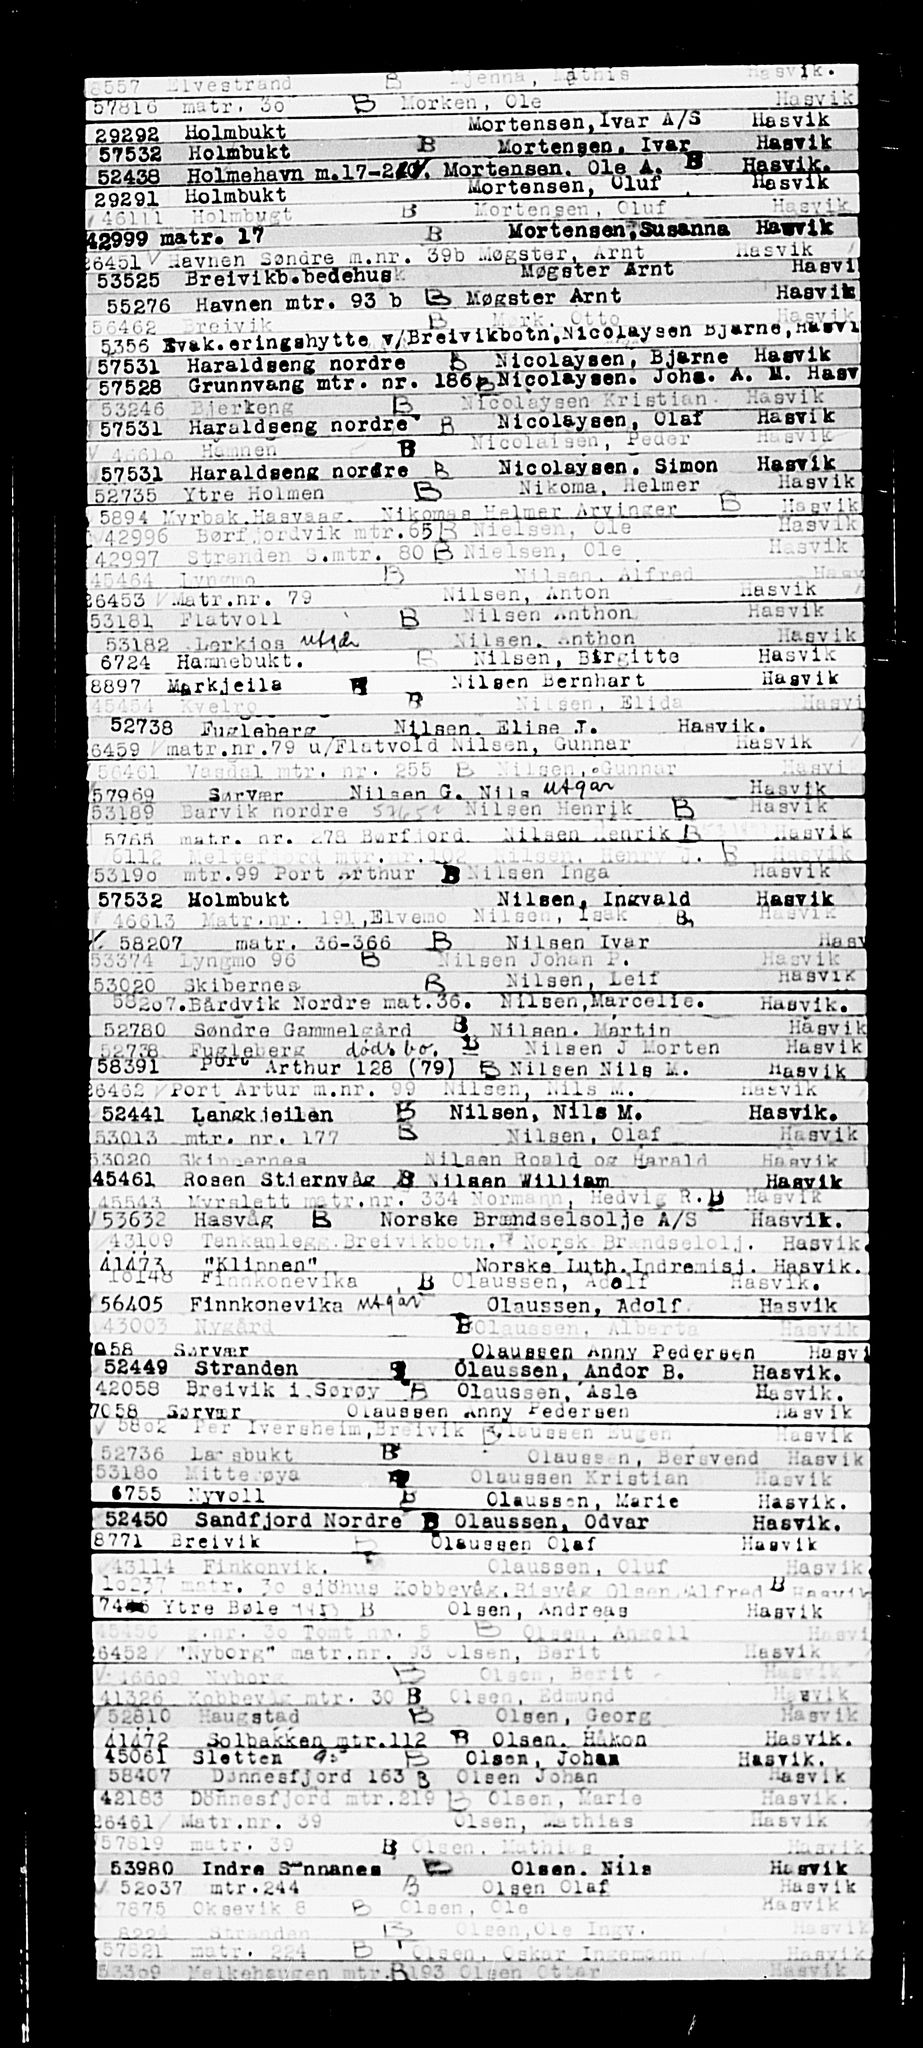 8557 Elvestrand B Mathis Hasvik.
57816 matr. 3o B Morken, Ole Hasvik
29292 Holmbukt Mortensen, Ivar A/S Hasvik
57532 Holmbukt B Mortensen, Ivar Hasvik
52438 Holmehavn m.17- Mortensen. Ole A. B Hasvik.
29291 Holmbukt Mortensen, Oluf Hasvik
46111 Holmbugt B Mortensen, Oluf Hasvik
42999 matr. 17 B Mortensen, Susanna Hasvik
26451 Havnen Søndre m.nr. 39b Møgster, Arnt Hasvik
53525 Breivikb.bedehusk Møgster Arnt Hasvi
55276 Havnen mtr. 93 b B Møgster Arnt Hasvik
56462 Breivik B Mørk Otto Hasvik
5356 Evak.eringshytte v/Breivikbotn, Nicolaysen Bjarne, Hasvi
57531 Haraldseng nordre B Nicolaysen, Bjarne Hasvik
57528 Grunnvang mtr. nr. 186 B Nicolaysen. Johs. A. M. Hasv
53246 Bjerkeng B Nicolaysen Kristian. Hasvik
57531 Haraldseng nordre B Nicolaysen, Olaf Hasvik
46610 Hamnen B Nicolaisen, Peder Hasvik
57531 Haraldseng nordre B Nicolaysen. Simon Hasvik
52735 Ytre Holmen B Nikoma, Helmer Hasvik
5894 Myrbak, Hasvaag. Nikomas Helmer Arvinger B Hasvik
42996 Børfjordvik mtr.65 B Nielsen, Ole Hasvik
42997 Stranden S.mtr. 80 B Nielsen, Ole Hasvik
45464 Lyngmo B Nilsen, Alfred Hasv
26453 Matr.nr. 79 Nilsen, Anton Hasvik
53181 Flatvoll B Nilsen Anthon Hasvik
53182 Lerkjos utgår Nilsen. Anthon Hasvik
6724 Hamnebukt. B Nilsen, Birgitte Hasvik
8897 Markjeila B Nilsen Bernhart Hasvik
45454 Kvelro B Nilsen, Elida Hasvi
52738 Fugleberg Nilsen. Elise J. Hasvik.
6459 matr.nr.79 u/Flatvold Nilsen, Gunnar Hasvik
56461 Vasdal mtr. nr. 255 B Nilsen, Gunnar Hasvi
57969 Sørvær Nilsen G. Nils utgår Hasvik
53189 Barvik nordre Nilsen Henrik B Hasvik
5765 matr. nr. 278 Børfjord. Nilsen Henrik B Hasvik
6112 Meltefjord mtr.nr.102 Nilsen, Henry J. B Hasvik
53190 mtr.99 Port Arthur B Nilsen Inga Hasvik
57532 Holmbukt Nilsen, Ingvald Hasvik
46613 Matr.nr. 191, Elvemo Nilsen, Isak B Hasvik
58207 matr. 36-366 B Nilsen Ivar Hasv
53374 Lyngmo 96 B Nilsen Johan P. Hasvik
53020 Skibernes B Nilsen, Leif Hasvik
58207. Bårdvik Nordre mat.36. Nilsen, Marcelie. Hasvik.
52780 Søndre Gammelgård B Nilsen. Martin Hasvik
52738 Fugleberg døds bo. B Nilsen J Morten Hasvik
58391 Port Arthur 128 (79) B Nilsen Nils M. Hasvik
26462 Port Artur m.nr. 99 Nilsen, Nils M. Hasvik
52441 Langkjeilen B Nilsen, Nils M. Hasvik.
53013 mtr. nr. 177 B Nilsen, Olaf Hasvik
53020 Nilsen Roald og Harald Hasvik
45461 Rosen Stiernvåg B Nilsen William Hasvik
45543 Myrslett matr.nr. 334 Normann, Hedvig R. B Hasvik
53632 Hasvåg B Norske Brændselsolje A/S Hasvik.
43109 Tankanlegg. Breivikbotn. Norsk Brændselolj. Hasvik.
41473 "Klippen" Norske Luth. Indremisj. Hasvik.
18148 Finnkonevika B Olaussen, Adolf Hasvik.
56405 Finnkonevika utgår Olaussen, Adolf Hasvik
43003 Nygård B Olaussen, Alberta Hasvik
7058 Sørvær Olaussen Anny Pedersen Hasvi
52449 Stranden B Olaussen, Andor B. Hasvik.
42058 Breivik i Sørøy B Olaussen, Asle Hasvik.
7058 Sørvær Olaussen Anny Pedersen Hasvik
5802 Per Iversheim, Breivik B Olaussen Eugen Hasvik
52736 Larsbukt B Olaussen, Bersvend Hasvik
53180 Mitterøya B Olaussen Kristian Hasvik
6755 Nyvoll B Olaussen, Marie Hasvik.
52450 Sandfjord Nordre B Olaussen, Odvar Hasvik.
8771 Breivik B Olaussen Olaf Hasvik
43114 Finkonvik. Olaussen, Oluf Hasvik
10237 matr. 3o sjöhus Kobbevåg. Risvåg Olsen, Alfred B Hasvik
Ytre Bøle B Olsen, Andreas Hasvik
45456 g.nr. 3o Tomt nr. 5 B Olsen, Angell Hasvi
26452 "Nyborg" matr.nr. 93 Olsen, Berit Hasvik
46609 Nyborg B Olsen, Berit Hasvik
41326 Kobbevåg mtr. 30 B Olsen, Edmund Hasvik
52810 Haugstad B Olsen, Georg Hasvik
41472 Solbakken mtr.112 B Olsen. Håkon Hasvik.
45061 Sletten B Olsen, Johan Hasvik.
58407 Dønnesfjord 163 B Olsen Johan Hasvik
42183 Dönnesfjord mtr.219 B Olsen, Marie Hasvik.
26461 Matr.nr. 39 Olsen, Mathias Hasvik
57819 matr. 39 B Olsen, Mathias Hasvik
53980 Indre Sønnanes B Olsen. Nils Hasvik
52037 mtr.244 B Olsen Olaf Hasvik
7875 Oksevik 8 B Olsen, Ole Hasvik
Stranden B Olsen, Ole Ingv. Hasvik
57821 matr. 224 B Olsen, Oskar Ingemann Hasvik
53309 Melkehaugen mtr. B 193 Olsen Ottar Hasvik